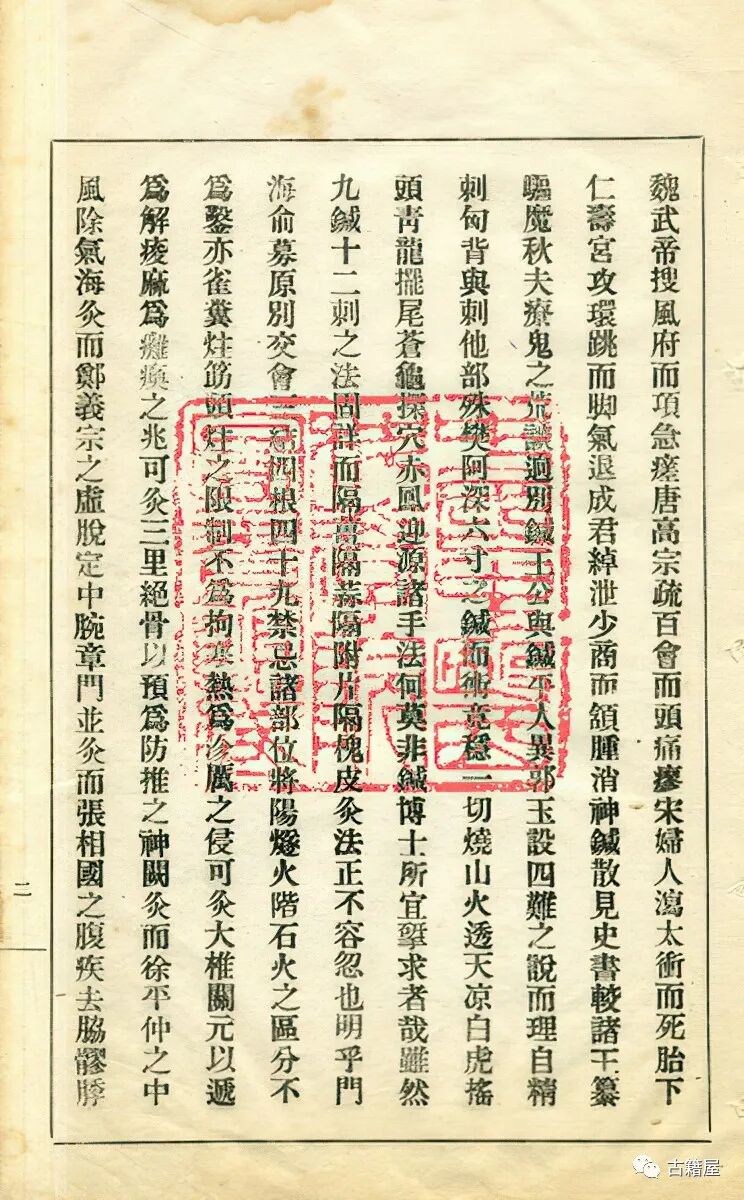 魏武帝搜風府而項急瘥唐高宗疏百會而頭痛瘳宋婦人瀉太衝而死胎下
仁壽宮攻環跳而脚氣退成君綽泄少商而頷腫消神鍼散見史書較諸王纂
驅魔秋夫療鬼之荒談迥別鍼王公與鍼平人異郭玉設四難之說而理自精
刺匈背與刺他部殊樊阿深六寸之鍼而術竟穩一切燒山火透天凉白虎搖
頭靑龍擺尾蒼龜探穴赤鳳迎源諸手法何莫非鍼博士所宜揅求者哉雖然
九鍼十二刺之法固詳而隔薑隔蒜隔附片隔槐皮灸法正不容忽也明乎門
海俞募原別交會三結四根四十九禁忌諸部位將陽燧火階石火之區分不
爲鑿亦雀糞炷筋頭炷之限制不爲拘寒熱爲沴厲之侵可灸大椎關元以遞
爲解痠麻爲癱瘓之兆可灸三里絕骨以預爲防推之神闕灸而徐平仲之中
風除氣海灸而鄭義宗之虛脫定中脘章門並灸而張相國之腹疾去脇髎髀
二
古籍屋